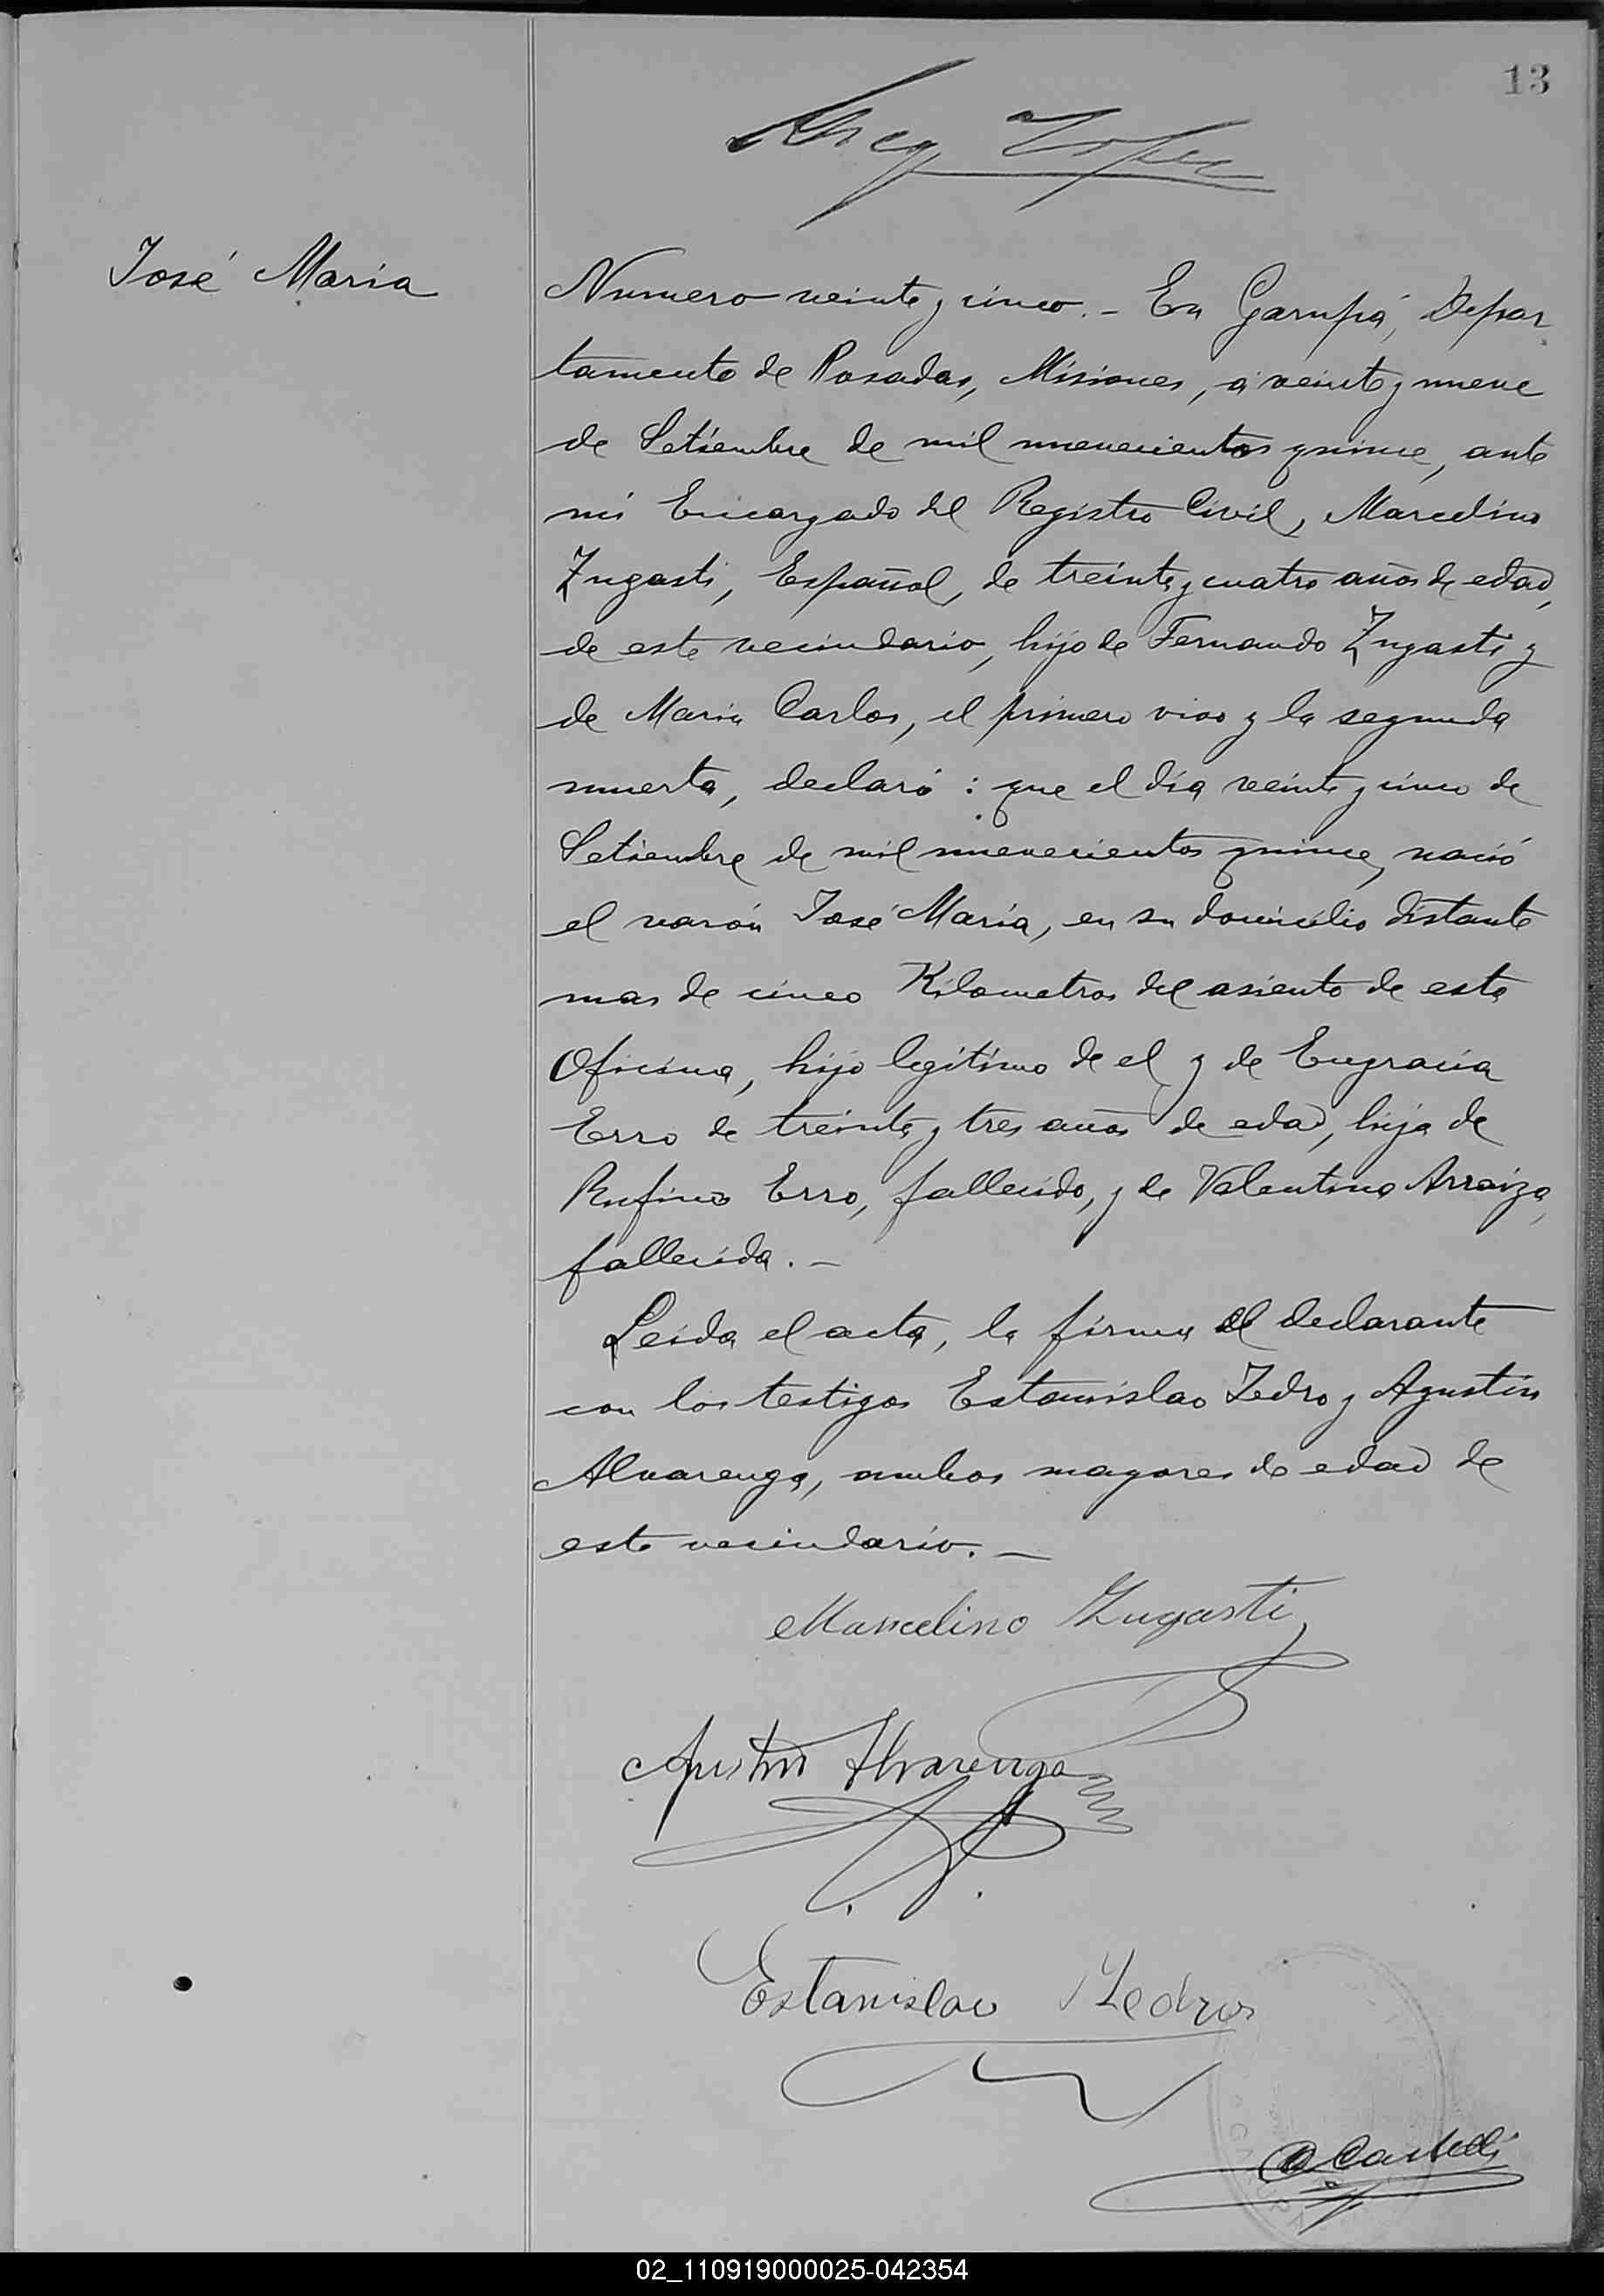 13
Lopez
José Maria
Numero veinte y cinco. - En Garupá, Depar
tamento de Posadas, Misiones, á veinte y nueve
de Setiembre de mil novecientos quince, ante
mi Encargado del Registro Civil, Marcelino
Zugasti, Español, de treinta y cuatro años de edad,
de este vecindario, hijo de Fernando Zugasti y
de Maria Carlos, el primero vivo y la segunda
muerta, declaró: que el día veinte y cinco de
Setiembre de mil novecientos quince, nació
el varón José María, en su domicilio distante
mas de cinco Kilometros del asiento de esta
Oficina, hijo legítimo de el y de Engracia
Erro de treinta y tres años de edad, hija de
Rufino Erro, fallecido, y de Valentina Arraiza,
fallecida. -
Leida el acta, la firma el declarante
con los testigos Estanislao Zedro y Agustín
Alvarenga, ambos mayores de edad de
este vecindario. -
Marcelino Zugasti
Agustin Alvarenga
Estanislao Zedro
Castelli
02_110919000025-042354